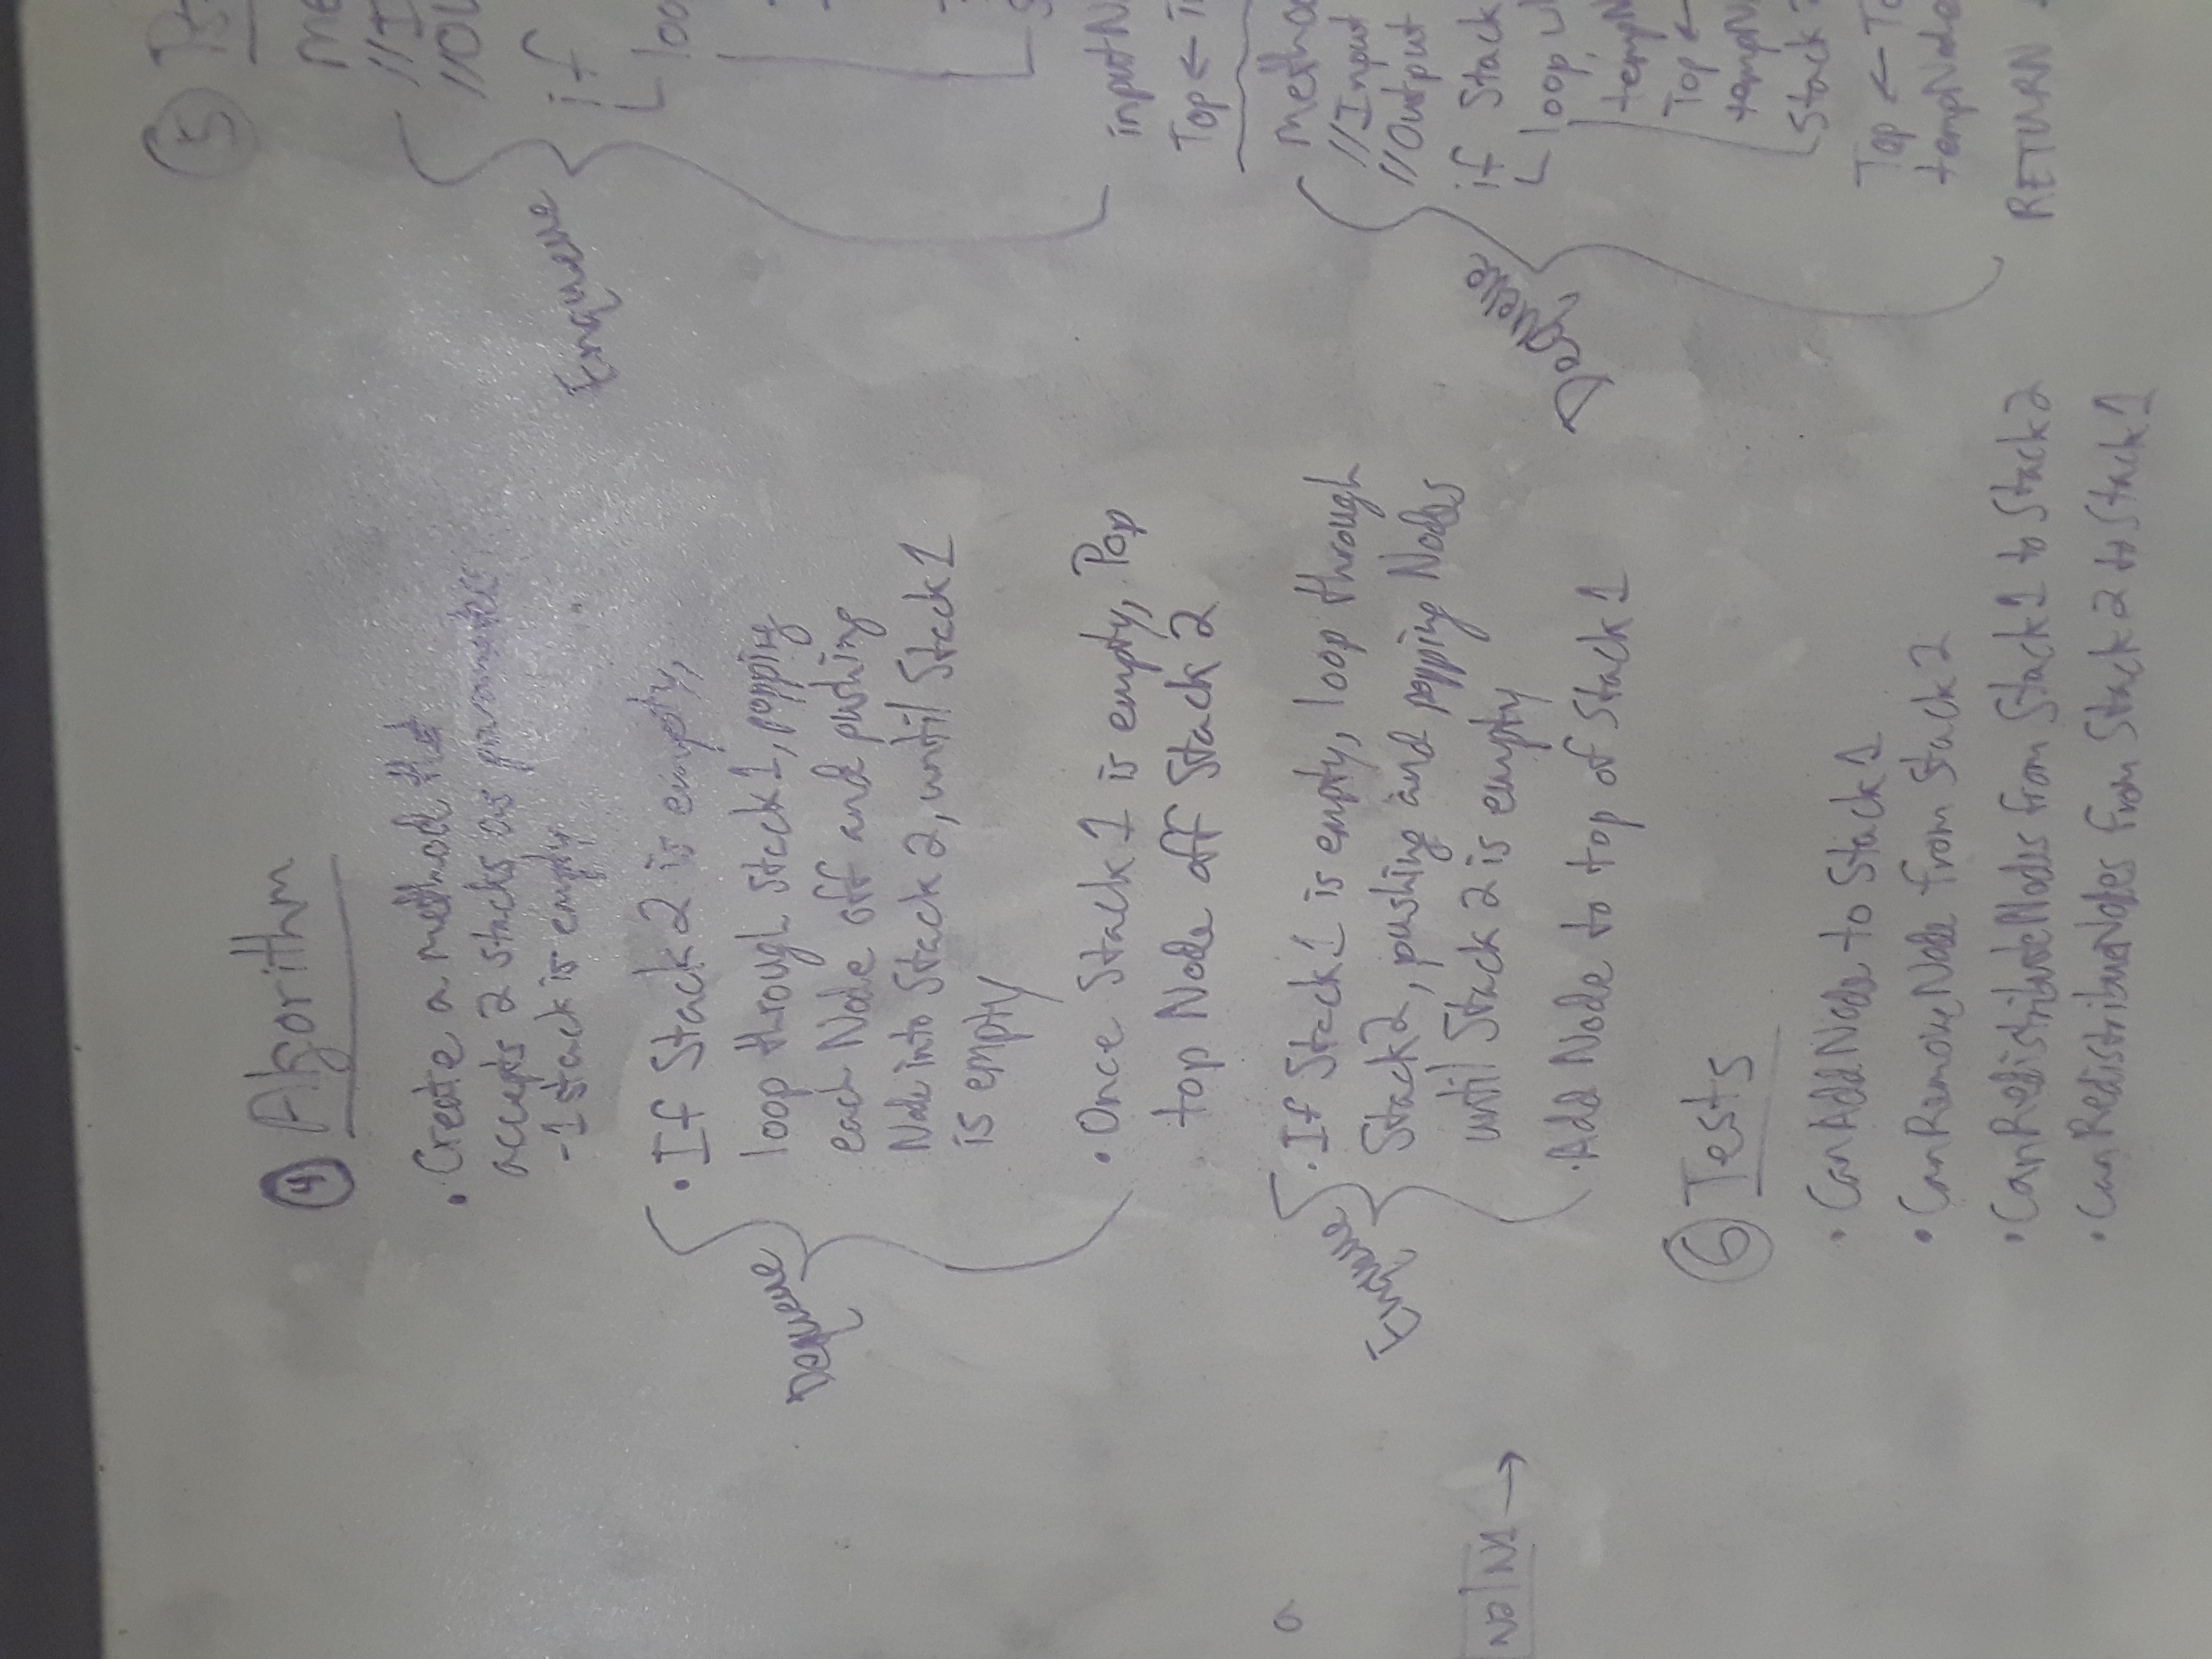 ④ Algorithm
• Create a method that
accepts 2 stacks as parameters
-1 stack is empty
Dequeue
• If Stack 2 is empty,
loop through stack 1, popping
each Node off and pushing
Node into Stack 2, until Stack 1
is empty
• Once Stack 1 is empty, Pop
top Node off Stack 2
Enqueue
• If Stack 1 is empty, loop through
Stack 2, pushing and popping Nodes
until Stack 2 is empty
• Add Node to top of Stack 1
⑥ Tests
• CanAddNode to Stack 1
• CanRemoveNode from Stack 2
• CanRedistributeNodes from Stack 1 to Stack 2
• CanRedistribueNodes from Stack 2 to Stack 1
a
N2 | N1 →
⑤ Ps
Me
//I
//Ou
Enqueue
if
loo
inputN
Top ← i
Metho
//Input
//Output
Dequeue
if Stack
loop w
tempN
Top ←
tempN
Stack 2
Top ← To
tempNode
RETURN